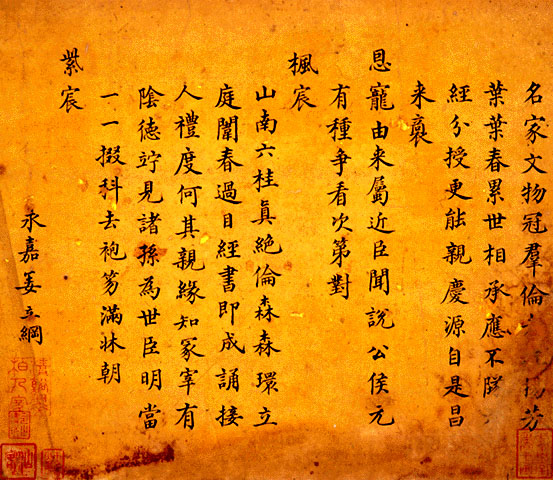 名家文物冠羣倫
葉葉春累世相承應不
經分授更能親慶源自是昌
来裔
恩寵由来屬近臣聞說公侯元
有種争看次第對
楓宸
山南六桂真絶倫森森環立
庭闈春過目經書即成誦接
人禮度何其親緣知冢宰有
陰德竚見諸孫為世臣明當
一一掇科去袍笏滿牀朝
紫宸
永嘉姜立綱